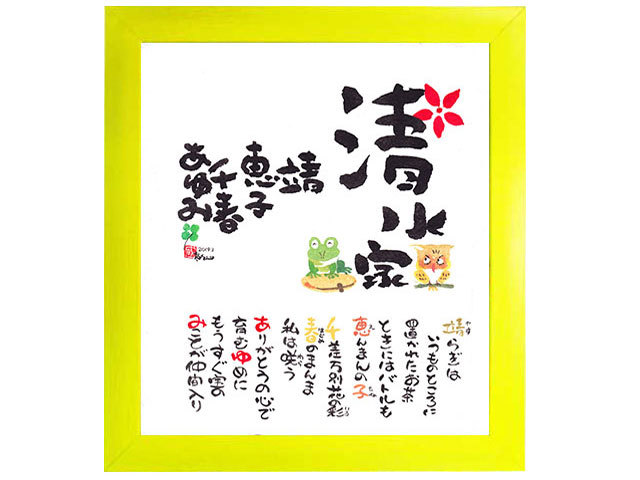 清水家
靖
恵子
千春
あゆみ
靖らぎは
いつものところに
置かれたお茶
ときにはバトルも
恵んまんの子
千差万別花の彩
春のまんま
私は咲う
ありがとうの心で
育むゆめに
もうすぐ雲の
みことが仲間入り